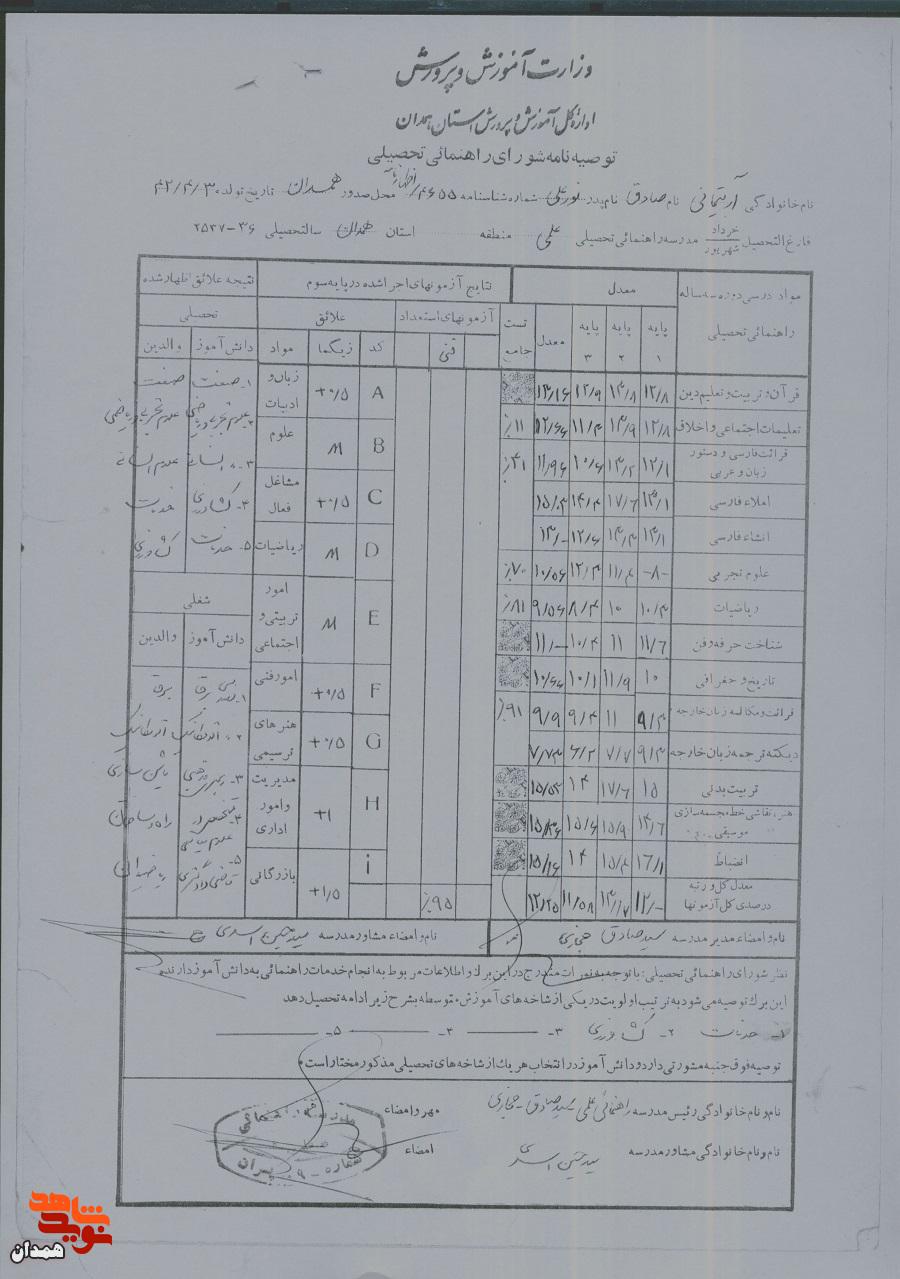 وزارت آموزش و پرورش
اداره کل آموزش و پرورش استان همدان
توصیه نامه شورای راهنمائی تحصیلی
نام خانوادگی آرتیمانی نام صادق نام پدر نورعلی شماره شناسنامه ۴۶۵۵ محل صدور همدان تاریخ تولد ۴۲/۴/۳
فارغ التحصیل خرداد شهریور مدرسه راهنمائی تحصیلی علمی منطقه استان همدان سال تحصیلی ۳۶-۲۵۳۷
مواد درسی دوره سه ساله راهنمائی تحصیلی
معدل
نتایج آزمونهای اجرا شده در پایه سوم
نتیجه علائق اظهار شده
پایه ۱ پایه ۲ پایه ۳ معدل تست جامع
آزمونهای استعداد
علائق
تحصیلی
فنی کد زیگما مواد دانش آموز والدین
قرآن و تربیت و تعلیم دین ۱۲/۸ ۱۳/۸ ۱۲/۹ ۱۳/۱۶
تعلیمات اجتماعی و اخلاق ۱۲/۸ ۱۳/۹ ۱۱/۳ ۱۲/۶۶ ٪۱۱
قرائت فارسی و دستور زبان و عربی ۱۲/۱ ۱۳/۲ ۱۰/۶ ۱۱/۹۶ ٪۴۱
املاء فارسی ۱۳/۱ ۱۷/۶ ۱۴/۴ ۱۵/۰۳
انشاء فارسی ۱۴/۱ ۱۳/۳ ۱۲/۶ ۱۳/۰
علوم تجربی ۸- ۱۱/۴ ۱۲/۳ ۱۰/۵۶ ٪۷۰
ریاضیات ۱۰/۳ ۱۰ ۸/۴ ۹/۵۶ ٪۸۱
شناخت حرفه و فن ۱۱/۶ ۱۱ ۱۰/۴ ۱۱/۰
تاریخ و جغرافی ۱۰ ۱۱/۹ ۱۰/۱ ۱۰/۶۶
قرائت و مکالمه زبان خارجه ۹/۳ ۱۱ ۹/۴ ۹/۹ ٪۹۱
دیکته ترجمه زبان خارجه ۹/۳ ۷/۷ ۶/۲ ۷/۷۳
تربیت بدنی ۱۵ ۱۷/۶ ۱۴ ۱۵/۵۳
هنر، نقاشی خط مجسمه سازی موسیقی ۱۴/۶ ۱۵/۹ ۱۵/۶ ۱۵/۳۶
انضباط ۱۶/۱ ۱۵/۴ ۱۴ ۱۵/۱۶
معدل کل و رتبه درصدی کل آزمونها ۱۲/۰ ۱۳/۱۷ ۱۱/۵۸ ۱۲/۲۵ ٪۹۵
A +۰/۵ زبان و ادبیات
B M علوم
C +۰/۵ مشاغل فعال
D M ریاضیات
E M امور تربیتی و اجتماعی
F +۰/۵ امور فنی
G +۰/۵ هنرهای ترسیمی
H +۱ مدیریت و امور اداری
i +۱/۵ بازرگانی
۱- صنعت صنعت
۲- علوم تجربی و ریاضی علوم تجربی و ریاضی
۳- انسانی علوم انسانی
۴- کشاورزی خدمات
۵- خدمات کشاورزی
شغلی
دانش آموز والدین
۱- مهندسی برق برق
۲- اتومکانیک اتومکانیک
۳- ماشین سازی
۴- متخصص در علوم سیاسی راه و ساختمان
۵- قاضی دادگستری
نام و امضاء مدیر مدرسه سید صادق حجازی نام و امضاء مشاور مدرسه سید حسین اسدی
نظر شورای راهنمائی تحصیلی: با توجه به نمرات مندرج در این برگ و اطلاعات مربوط به انجام خدمات راهنمائی به دانش آموز دارنده
این برگ توصیه می شود به ترتیب اولویت در یکی از شاخه های آموزش متوسطه بشرح زیر ادامه تحصیل دهد
۱- خدمات ۲- کشاورزی ۳- ۴- ۵-
توصیه فوق جنبه مشورتی دارد و دانش آموز در انتخاب هر یک از شاخه های تحصیلی مذکور مختار است.
نام و نام خانوادگی رئیس مدرسه راهنمائی علمی سید صادق حجازی مهر و امضاء
نام و نام خانوادگی مشاور مدرسه سید حسین اسدی امضاء
نوید شاهد
همدان